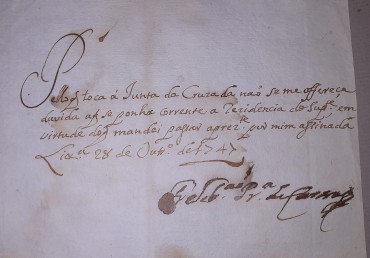 Pello q̃ toca á Junta da Cruzada não se me offereça
duvida a q̃ se ponha corrente a Rezidencia do Supᵉ em
virtude do q̃ mandei passar a prezᵗᵉ por mim assinada
Lixᵃ 28 de Outrº de 1747